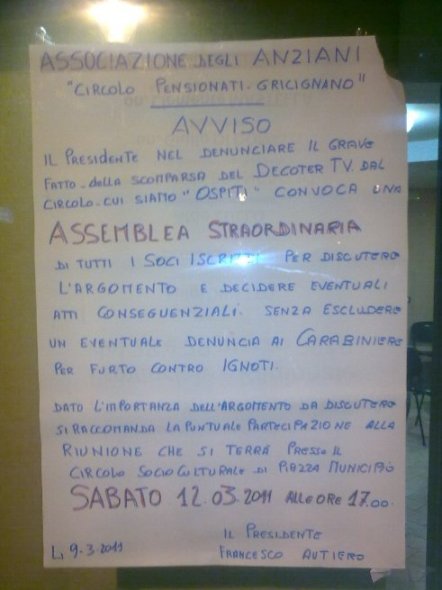 ASSOCIAZIONE DEGLI ANZIANI
"CIRCOLO PENSIONATI-GRICIGNANO"
AVVISO
IL PRESIDENTE NEL DENUNCIARE IL GRAVE
FATTO-della SCOMPARSA DEL DECOTER TV. DAL
CIRCOLO-CUI SIAMO "OSPITI" CONVOCA UNA
ASSEMBLEA STRAORDINARIA
DI TUTTI I SOCI ISCRITTI PER DISCUTERE
L'ARGOMENTO E DECIDERE EVENTUALI
ATTI CONSEGUENZIALI. SENZA ESCLUDERE
UN EVENTUALE DENUNCIA AI CARABINIERE
PER FURTO CONTRO IGNOTI.
DATO L'IMPORTANZA DELL'ARGOMENTO DA DISCUTERE
SI RACCOMANDA LA PUNTUALE PARTECIPAZIONE ALLA
RIUNIONE CHE SI TERRÁ PRESSO IL
CIRCOLO SOCIO CULTURALE DI PIAZZA MUNICIPIO
SABATO 12.03.2011 ALLE ORE 17.00.
IL PRESIDENTE
Lì 9-3-2011 FRANCESCO AUTIERO